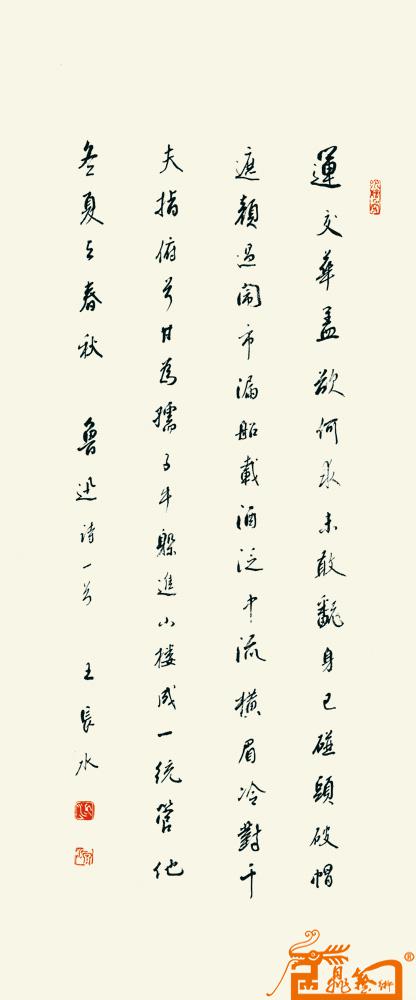 運交華盖欲何求未敢翻身已碰頭破帽
遮顏過鬧市漏船載酒泛中流橫眉冷對千
夫指俯首甘為孺子牛躲進小楼成一統管他
冬夏与春秋 魯迅詩一首 王長水